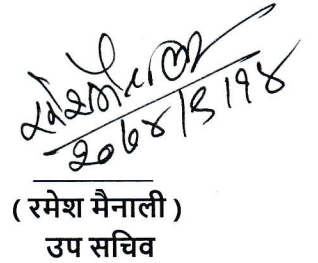 २०७४/९/१४
( रमेश मैनाली )
उप सचिव